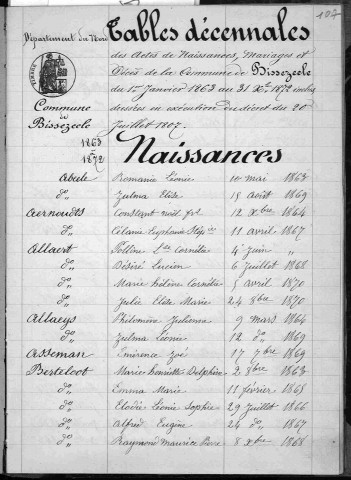 107
Département du Nord
Tables décennales
des Actes de Naissances, Mariages et
Décès de la Commune de Bissezeele
du 1er Janvier 1863 au 31 Xbre 1872 inclus
dressées en exécution du décret du 20
Juillet 1807.
Commune
de
Bissezeele
1863
à
1872
Naissances
Abeele Romanie Léonie 10 mai 1863
do Zulma Elise 15 août 1869
Aernoudts Constant 12 xbre 1864
do Célanie 11 avril 1867
Allaert Cornélie 4 juin "
do Désiré Lucien 6 Juillet 1868
do Marie Hélène Cornélie 5 avril 1870
do Julie Elise Marie 24 8bre 1870
Allaeys Philomène Julienne 9 mars 1864
do Zulma Léonie 12 do 1869
Asseman Emérence Zoé 17 7bre 1869
Berteloot Marie Henriette Delphine 2 8bre 1863
do Emma Marie 11 février 1865
do Elodie Léonie Sophie 29 Juillet 1866
do Alfred Eugène 24 do 1867
do Raymond Maurice 8 xbre 1868